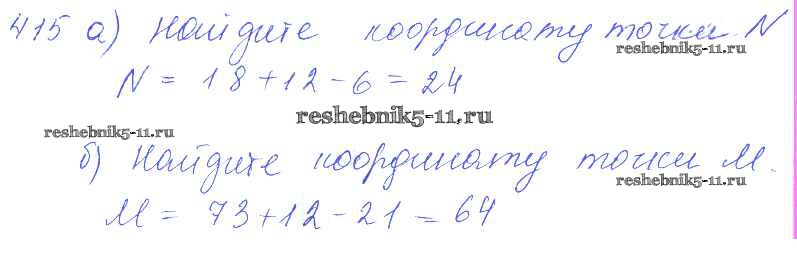 415 а) Найдите координату точки N
reshebnik5-11.ru
N = 18 + 12 - 6 = 24
reshebnik5-11.ru
reshebnik5-11.ru
б) Найдите координату точки M.
reshebnik5-11.ru
M = 73 + 12 - 21 = 64